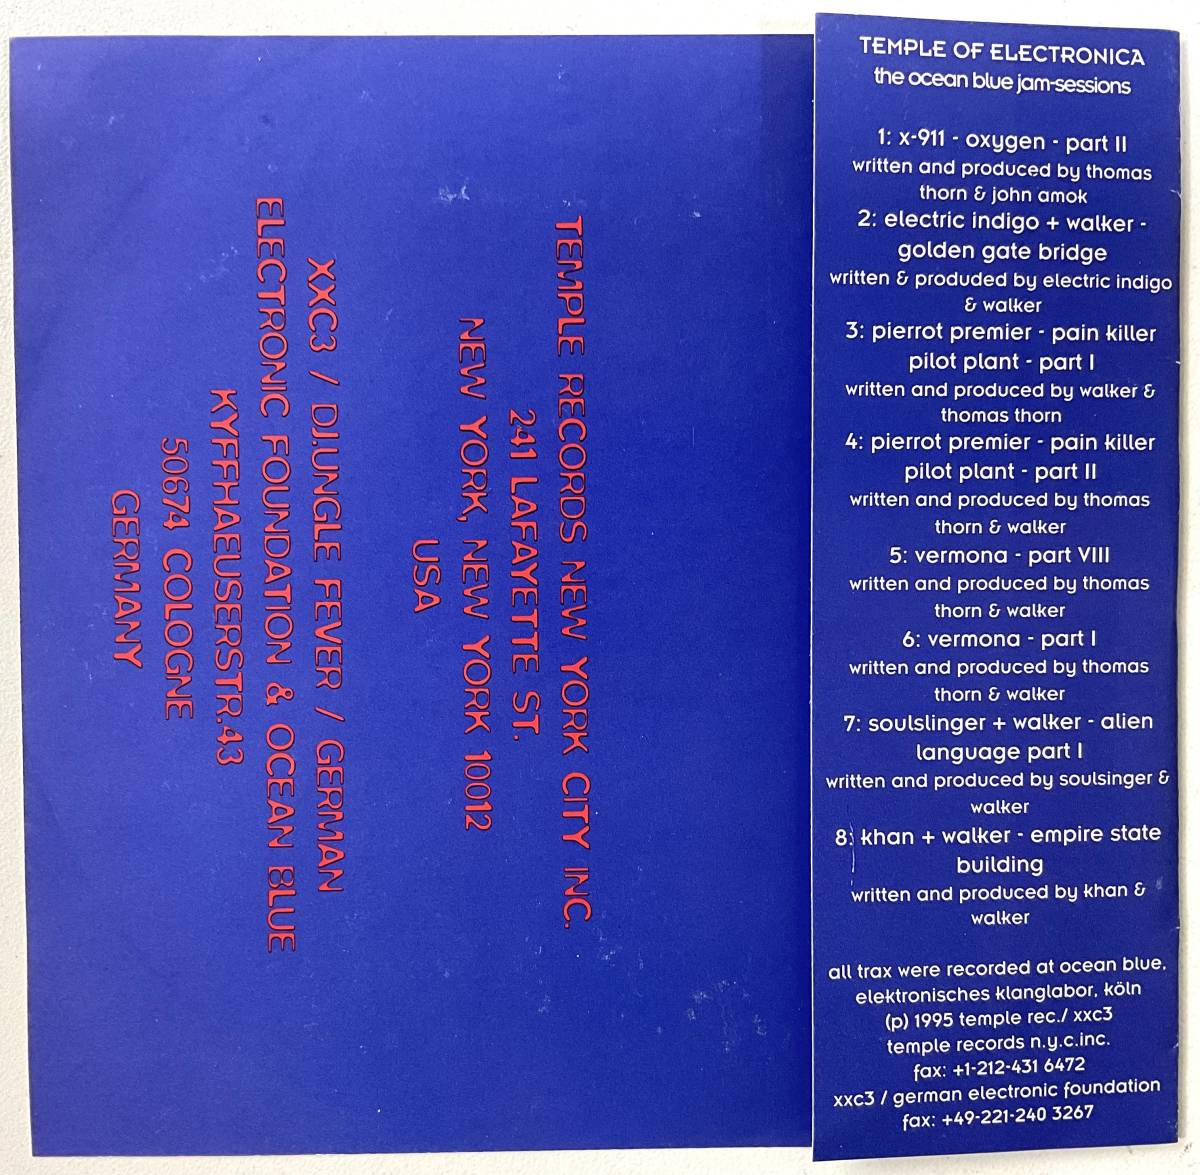 TEMPLE OF ELECTRONICA
the ocean blue jam-sessions
1: x-911 - oxygen - part II
written and produced by thomas
thorn & john amok
2: electric indigo + walker -
golden gate bridge
written & produded by electric indigo
& walker
3: pierrot premier - pain killer
pilot plant - part I
written and produced by walker &
thomas thorn
4: pierrot premier - pain killer
pilot plant - part II
written and produced by thomas
thorn & walker
5: vermona - part VIII
written and produced by thomas
thorn & walker
6: vermona - part I
written and produced by thomas
thorn & walker
7: soulslinger + walker - alien
language part I
written and produced by soulsinger &
walker
8: khan + walker - empire state
building
written and produced by khan &
walker
all trax were recorded at ocean blue.
elektronisches klanglabor, köln
(p) 1995 temple rec./ xxc3
temple records n.y.c.inc.
fax: +1-212-431 6472
xxc3 / german electronic foundation
fax: +49-221-240 3267
TEMPLE RECORDS NEW YORK CITY INC.
241 LAFAYETTE ST.
NEW YORK, NEW YORK 10012
USA
XXC3 / DJ.UNGLE FEVER / GERMAN
ELECTRONIC FOUNDATION & OCEAN BLUE
KYFFHAEUSERSTR.43
50674 COLOGNE
GERMANY